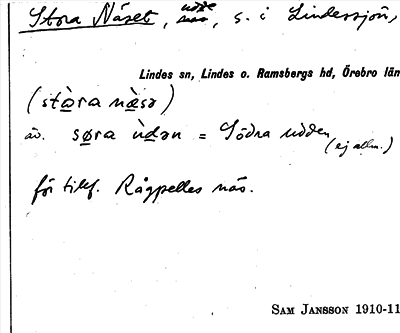 Stora Näset, udde, s. i Lindessjön,
Lindes sn, Lindes o. Ramsbergs hd, Örebro län
(stọ̀ra nạ̀sə)
äv. sø̣ra ùdən = Södra udden
(ej allm.)
för tillf. Rågpelles näs.
SAM JANSSON 1910-11